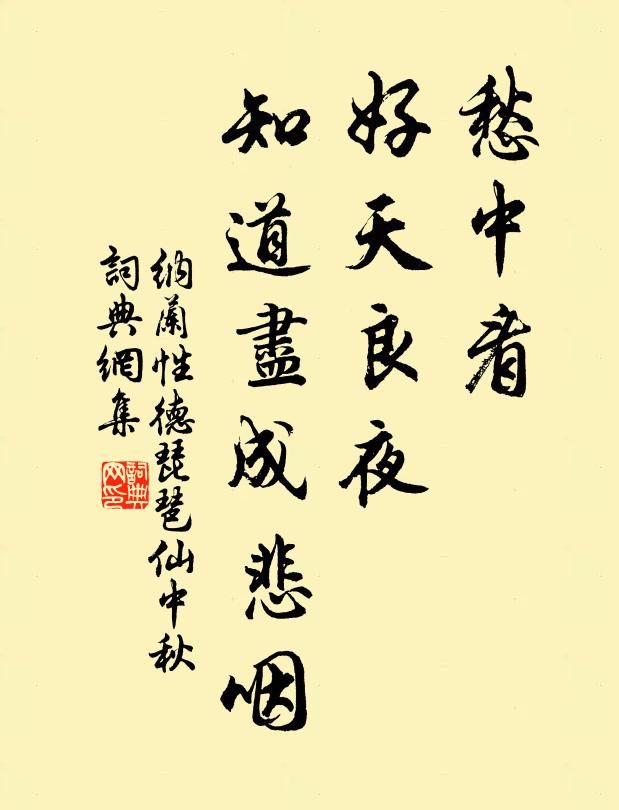 愁中看
好天良夜
知道盡成悲咽
納蘭性德琵琶仙中秋
詞典網集
詞典网印